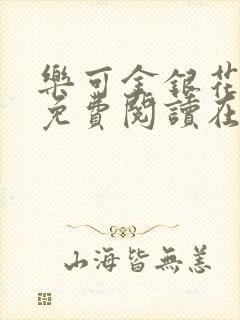 樂可金銀花
免費閱讀在
山海皆無恙